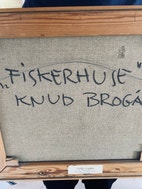 „FISKERHUSE"
KNUD BROGÅ